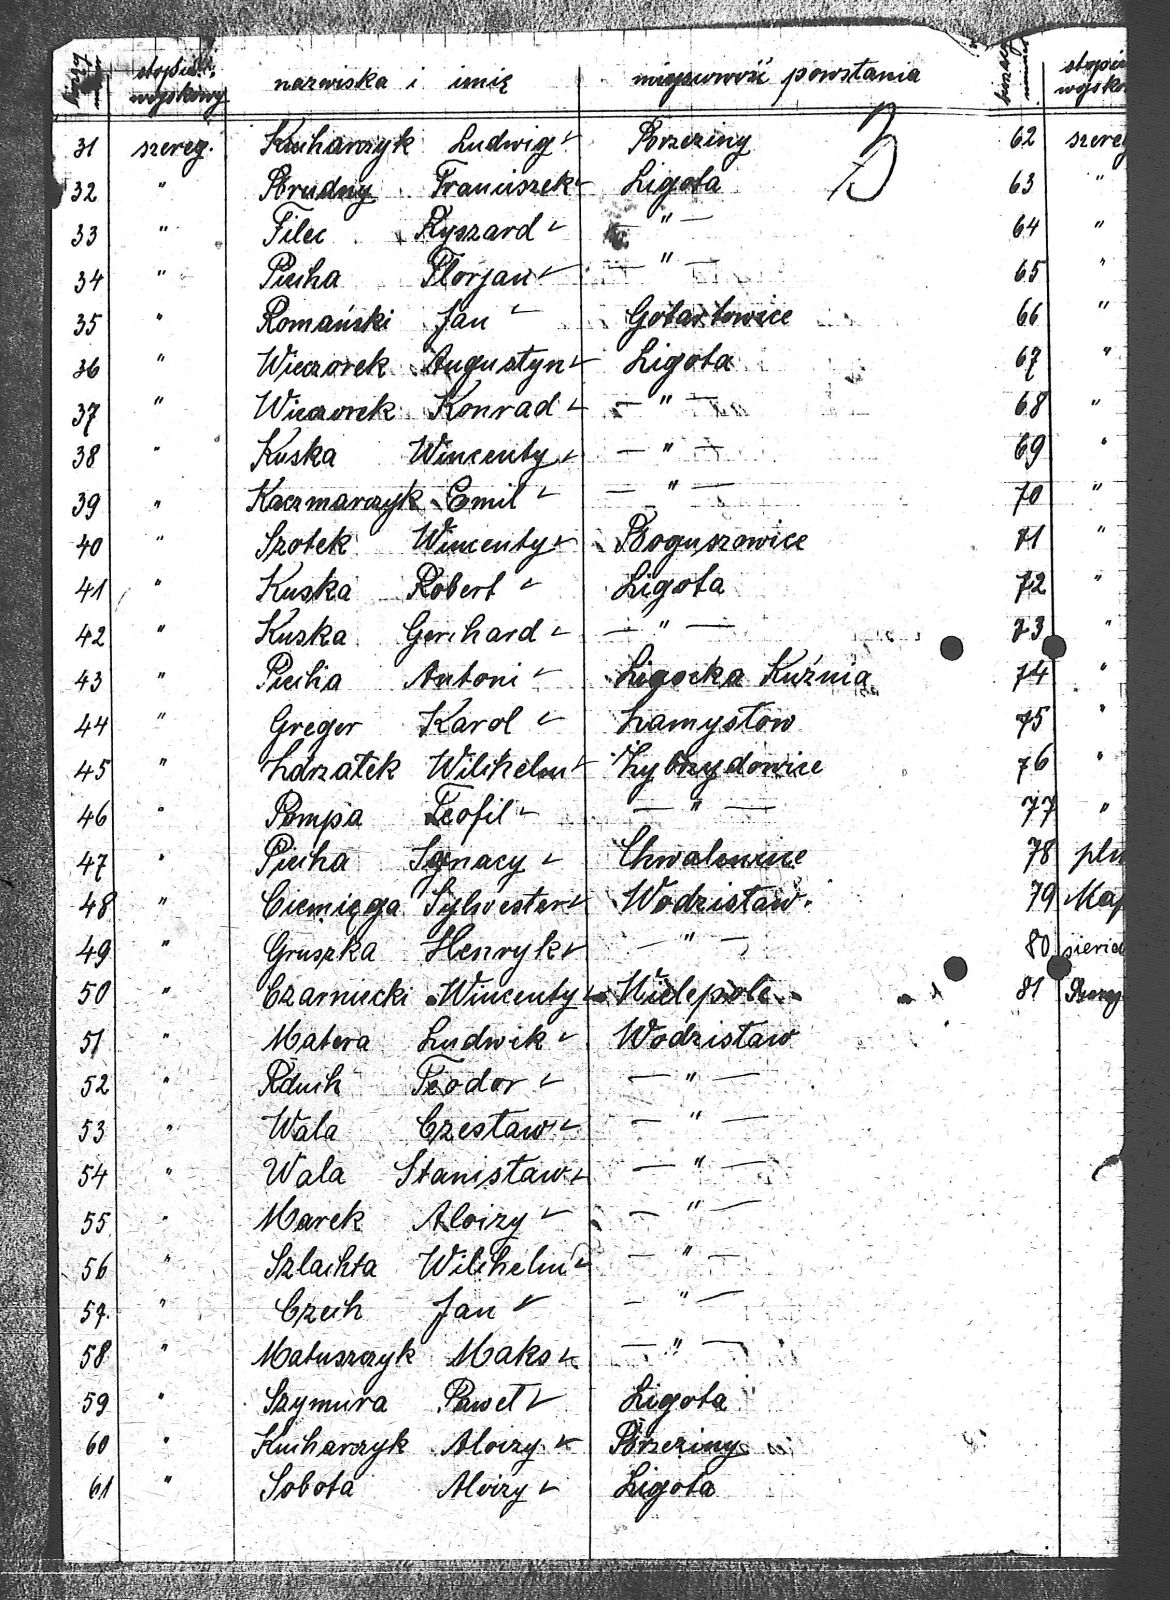 liczba stopień wojskowy nazwiska i imię miejscowość powstania
B
31 szereg. Kucharczyk Ludwig Brzeziny
32 " Brudny Franciszek Ligota
33 " Filec Ryszard — " —
34 " Piecha Florjan — " —
35 " Romański Jan Gotartowice
36 " Wieczorek Augustyn Ligota
37 " Wieczorek Konrad — " —
38 " Kuska Wincenty — " —
39 " Kaczmarczyk Emil — " —
40 " Szotek Wincenty Boguszowice
41 " Kuska Robert Ligota
42 " Kuska Gerchard — " —
43 " Piecha Antoni Ligocka Kuźnia
44 " Greger Karol Zamysłow
45 " Zdrzałek Wilchelm Zybrzydowice
46 " Pampa Teofil — " —
47 " Piecha Ignacy Chwałowice
48 " Ciemięga Sylwester Wodzisław
49 " Gruszka Henryk — " —
50 " Czarnecki Wincenty Wielepole
51 " Matera Ludwik Wodzisław
52 " Rduch Teodor — " —
53 " Wala Czesław — " —
54 " Wala Stanisław — " —
55 " Marek Aloizy — " —
56 " Szlachta Wilchelm — " —
57 " Czech Jan — " —
58 " Matuszczyk Maks — " —
59 " Szymura Paweł Ligota
60 " Kucharczyk Aloizy Brzeziny
61 " Sobota Aloizy Ligota
62 szereg
63 "
64 "
65 "
66 "
67 "
68 "
69 "
70 "
71 "
72 "
73 "
74 "
75 "
76 "
77 "
78
79
80
81